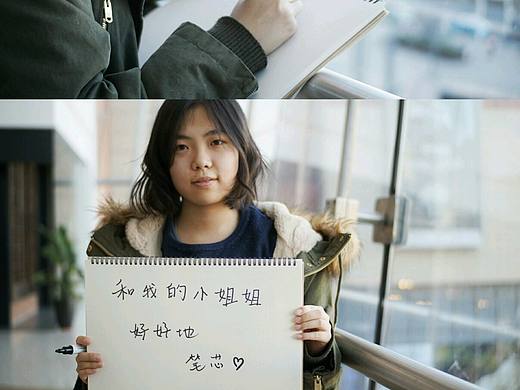 和我的小姐姐
好好地
笔芯♡